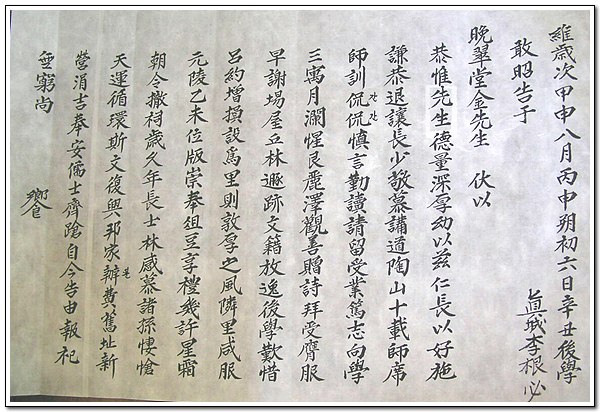 維歲次甲申八月丙申朔初六日辛丑後學
眞城李根必
敢昭告于
晩翠堂金先生 伏以
恭惟先生德量深厚幼以玆仁長以好施
謙恭退讓長少敬慕講道陶山十載師席
師訓侃侃愼言勤讀請留受業篤志向學
간간
三寓月瀾惺艮麗澤觀善贈詩拜受膺服
早謝場屋丘林遯跡文籍放逸後學歎惜
呂約增損設爲里則敦厚之風隣里咸服
元陵乙未位版崇奉俎豆享禮幾許星霜
朝令撤祠歲久年長士林感慕諸孫悽愴
天運循環斯文復興邦家辦費舊址新
營涓吉奉安儒士齊蹌自今告由報祀
無窮尙
饗